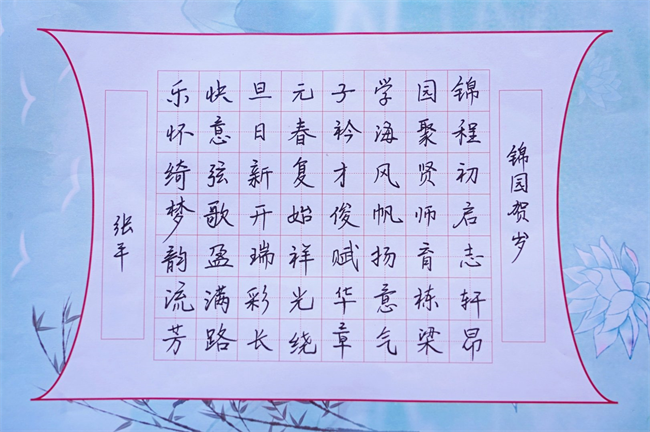 锦园贺岁
锦程初启志轩昂
园聚贤师育栋梁
学海风帆扬意气
子衿才俊赋华章
元春复始祥光绕
旦日新开瑞彩长
快意弦歌盈满路
乐怀绮梦韵流芳
张平